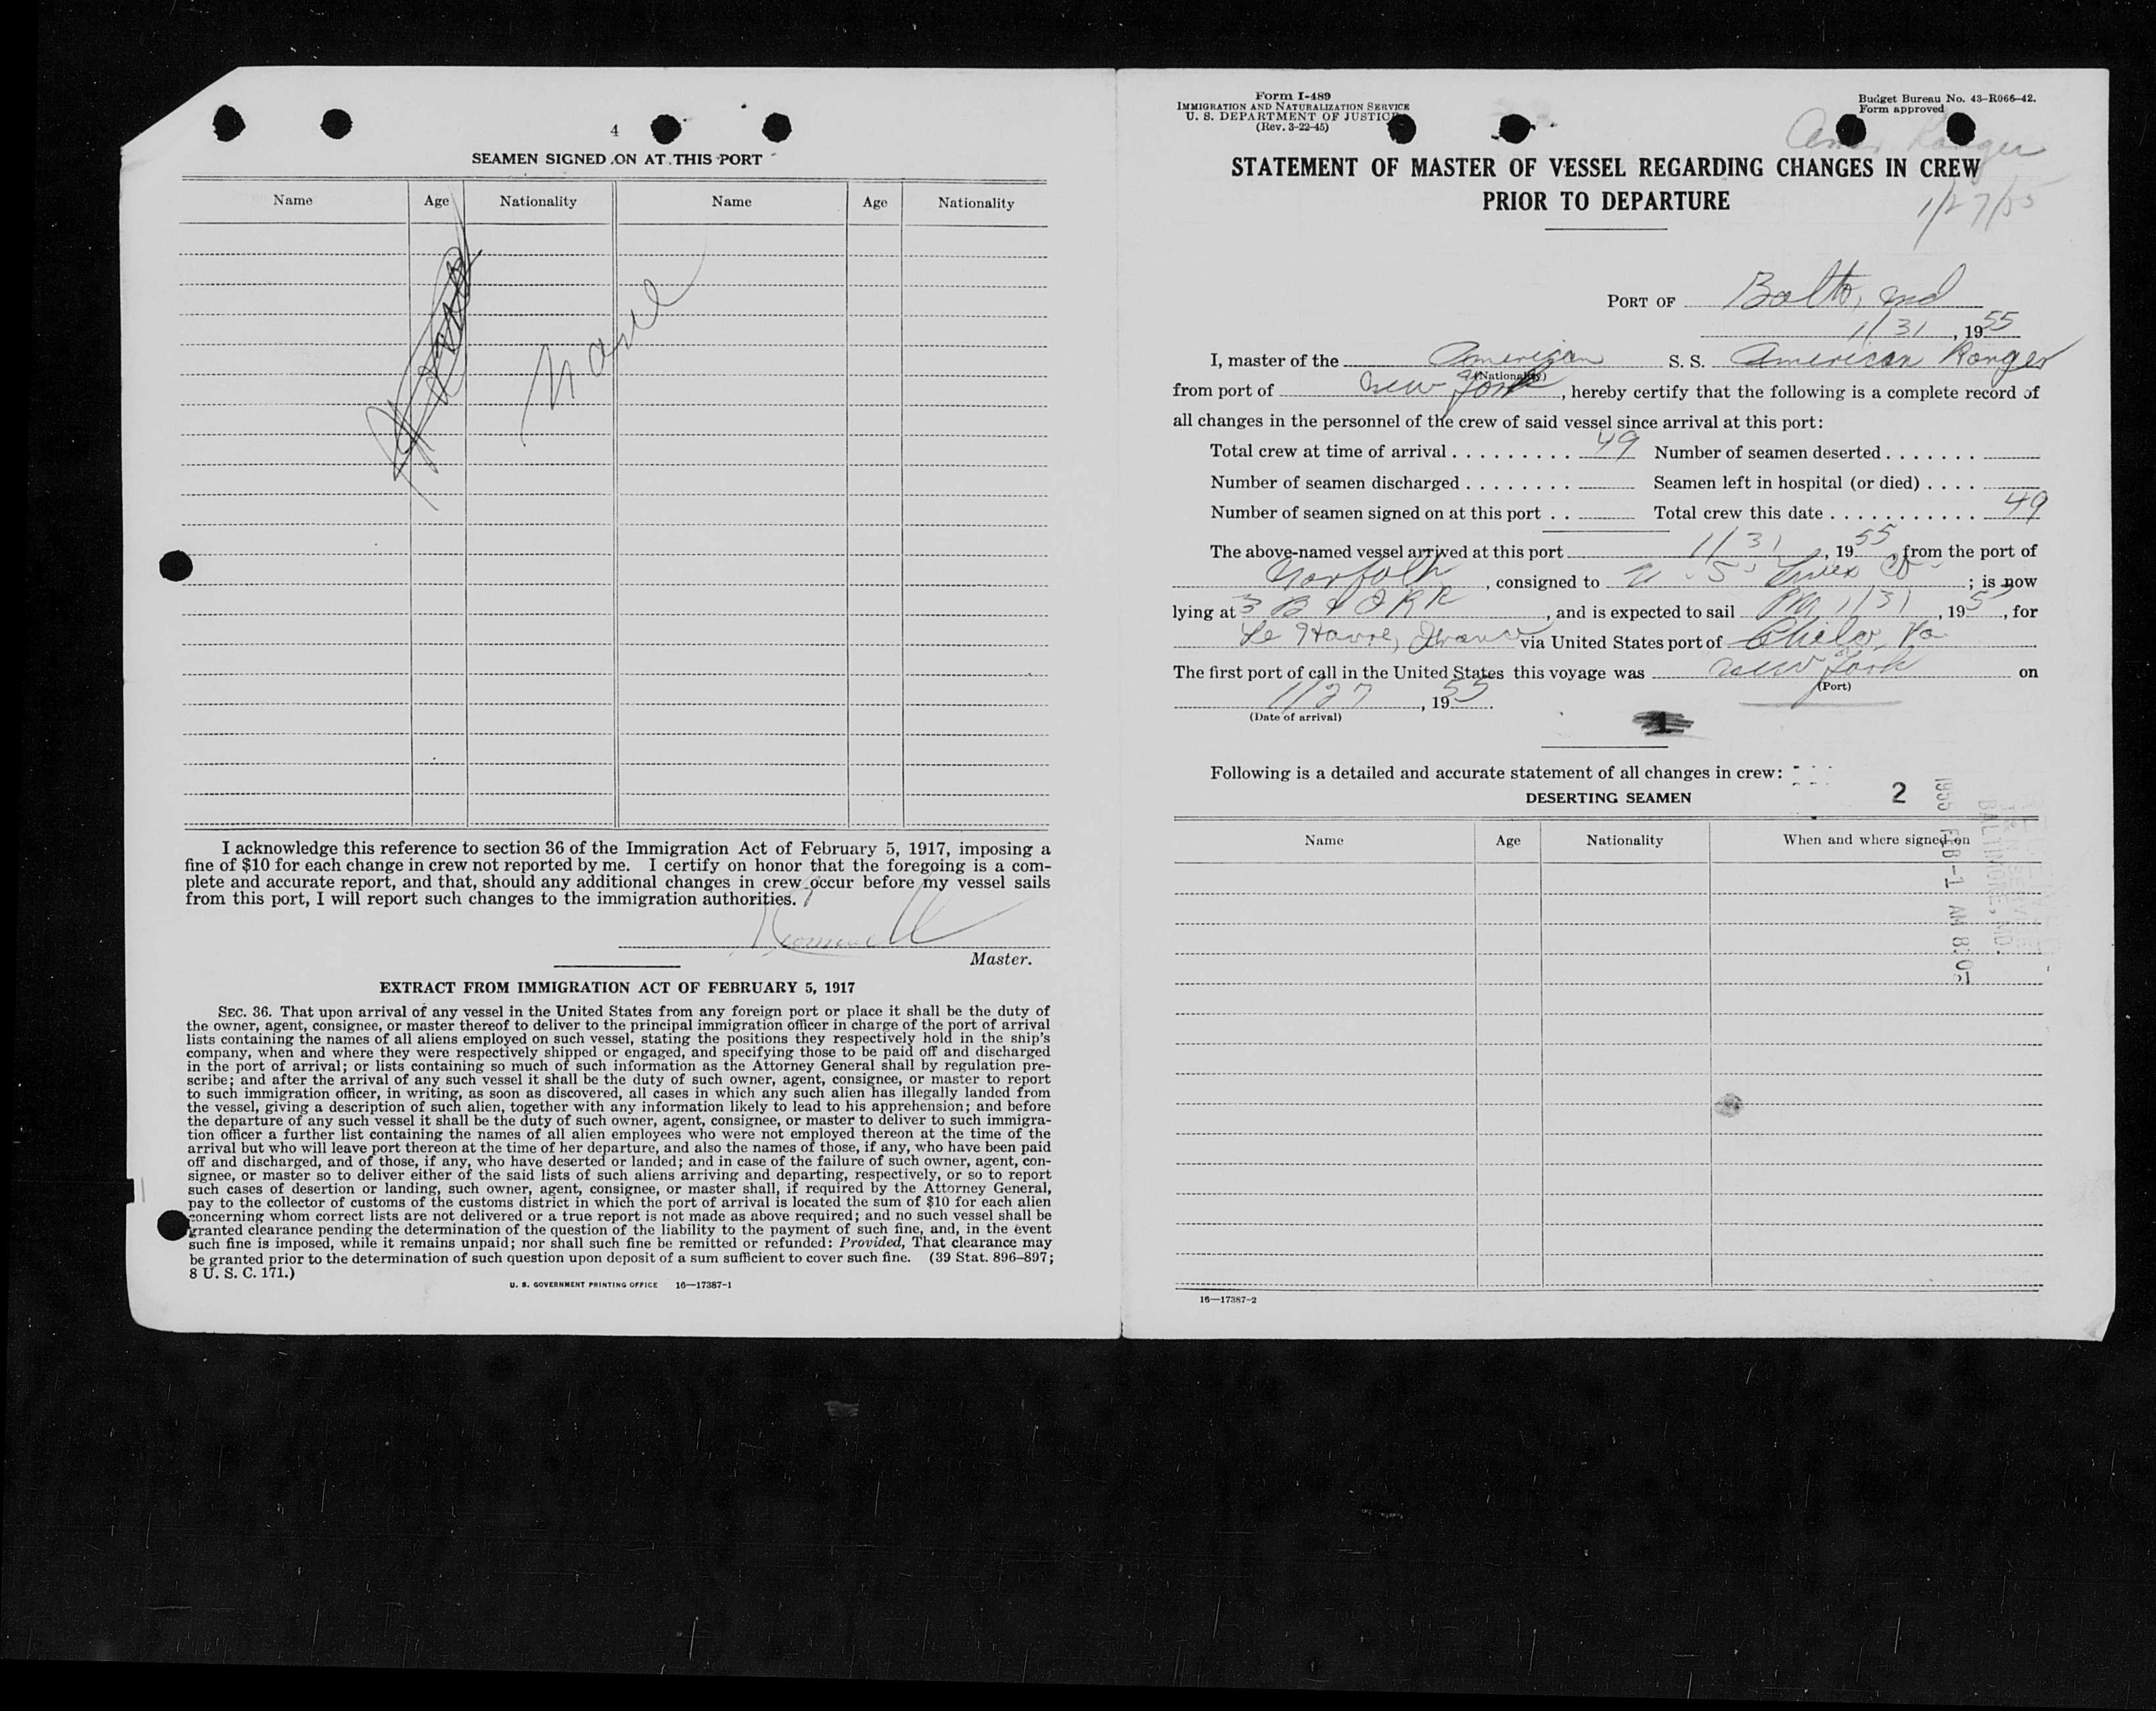 4
SEAMEN SIGNED ON AT THIS PORT
Name Age Nationality Name Age Nationality
None
I acknowledge this reference to section 36 of the Immigration Act of February 5, 1917, imposing a
fine of $10 for each change in crew not reported by me. I certify on honor that the foregoing is a com-
plete and accurate report, and that, should any additional changes in crew occur before my vessel sails
from this port, I will report such changes to the immigration authorities.
Master.
EXTRACT FROM IMMIGRATION ACT OF FEBRUARY 5, 1917
SEC. 36. That upon arrival of any vessel in the United States from any foreign port or place it shall be the duty of
the owner, agent, consignee, or master thereof to deliver to the principal immigration officer in charge of the port of arrival
lists containing the names of all aliens employed on such vessel, stating the positions they respectively hold in the ship's
company, when and where they were respectively shipped or engaged, and specifying those to be paid off and discharged
in the port of arrival; or lists containing so much of such information as the Attorney General shall by regulation pre-
scribe; and after the arrival of any such vessel it shall be the duty of such owner, agent, consignee, or master to report
to such immigration officer, in writing, as soon as discovered, all cases in which any such alien has illegally landed from
the vessel, giving a description of such alien, together with any information likely to lead to his apprehension; and before
the departure of any such vessel it shall be the duty of such owner, agent, consignee, or master to deliver to such immigra-
tion officer a further list containing the names of all alien employees who were not employed thereon at the time of the
arrival but who will leave port thereon at the time of her departure, and also the names of those, if any, who have been paid
off and discharged, and of those, if any, who have deserted or landed; and in case of the failure of such owner, agent, con-
signee, or master so to deliver either of the said lists of such aliens arriving and departing, respectively, or so to report
such cases of desertion or landing, such owner, agent, consignee, or master shall, if required by the Attorney General,
pay to the collector of customs of the customs district in which the port of arrival is located the sum of $10 for each alien
concerning whom correct lists are not delivered or a true report is not made as above required; and no such vessel shall be
granted clearance pending the determination of the question of the liability to the payment of such fine, and, in the event
such fine is imposed, while it remains unpaid; nor shall such fine be remitted or refunded: Provided, That clearance may
be granted prior to the determination of such question upon deposit of a sum sufficient to cover such fine. (39 Stat. 896–897;
8 U. S. C. 171.)
U. S. GOVERNMENT PRINTING OFFICE 16—17387-1
Form I-489
IMMIGRATION AND NATURALIZATION SERVICE
U. S. DEPARTMENT OF JUSTICE
(Rev. 3-22-45)
Budget Bureau No. 43-R066-42.
Form approved
Amer Ranger
1/27/55
STATEMENT OF MASTER OF VESSEL REGARDING CHANGES IN CREW
PRIOR TO DEPARTURE
PORT OF Balto, Md
1/31, 1955
I, master of the American S. S. American Ranger
(Nationality)
from port of New York, hereby certify that the following is a complete record of
all changes in the personnel of the crew of said vessel since arrival at this port:
Total crew at time of arrival . . . . . . . . . 49 Number of seamen deserted . . . . . . .
Number of seamen discharged . . . . . . . . Seamen left in hospital (or died) . . . .
Number of seamen signed on at this port . . Total crew this date . . . . . . . . . . . 49
The above-named vessel arrived at this port 1/31, 1955, from the port of
Norfolk, consigned to U.S. Lines Co; is now
lying at 3 B & O RR, and is expected to sail PM 1/31, 195, for
Le Havre, France via United States port of Va
The first port of call in the United States this voyage was New York on
(Port)
1/27, 1955.
(Date of arrival)
Following is a detailed and accurate statement of all changes in crew:
DESERTING SEAMEN 2
Name Age Nationality When and where signed on
1955 FEB -1 AM 8:05
BALTIMORE, MD.
16—17387-2